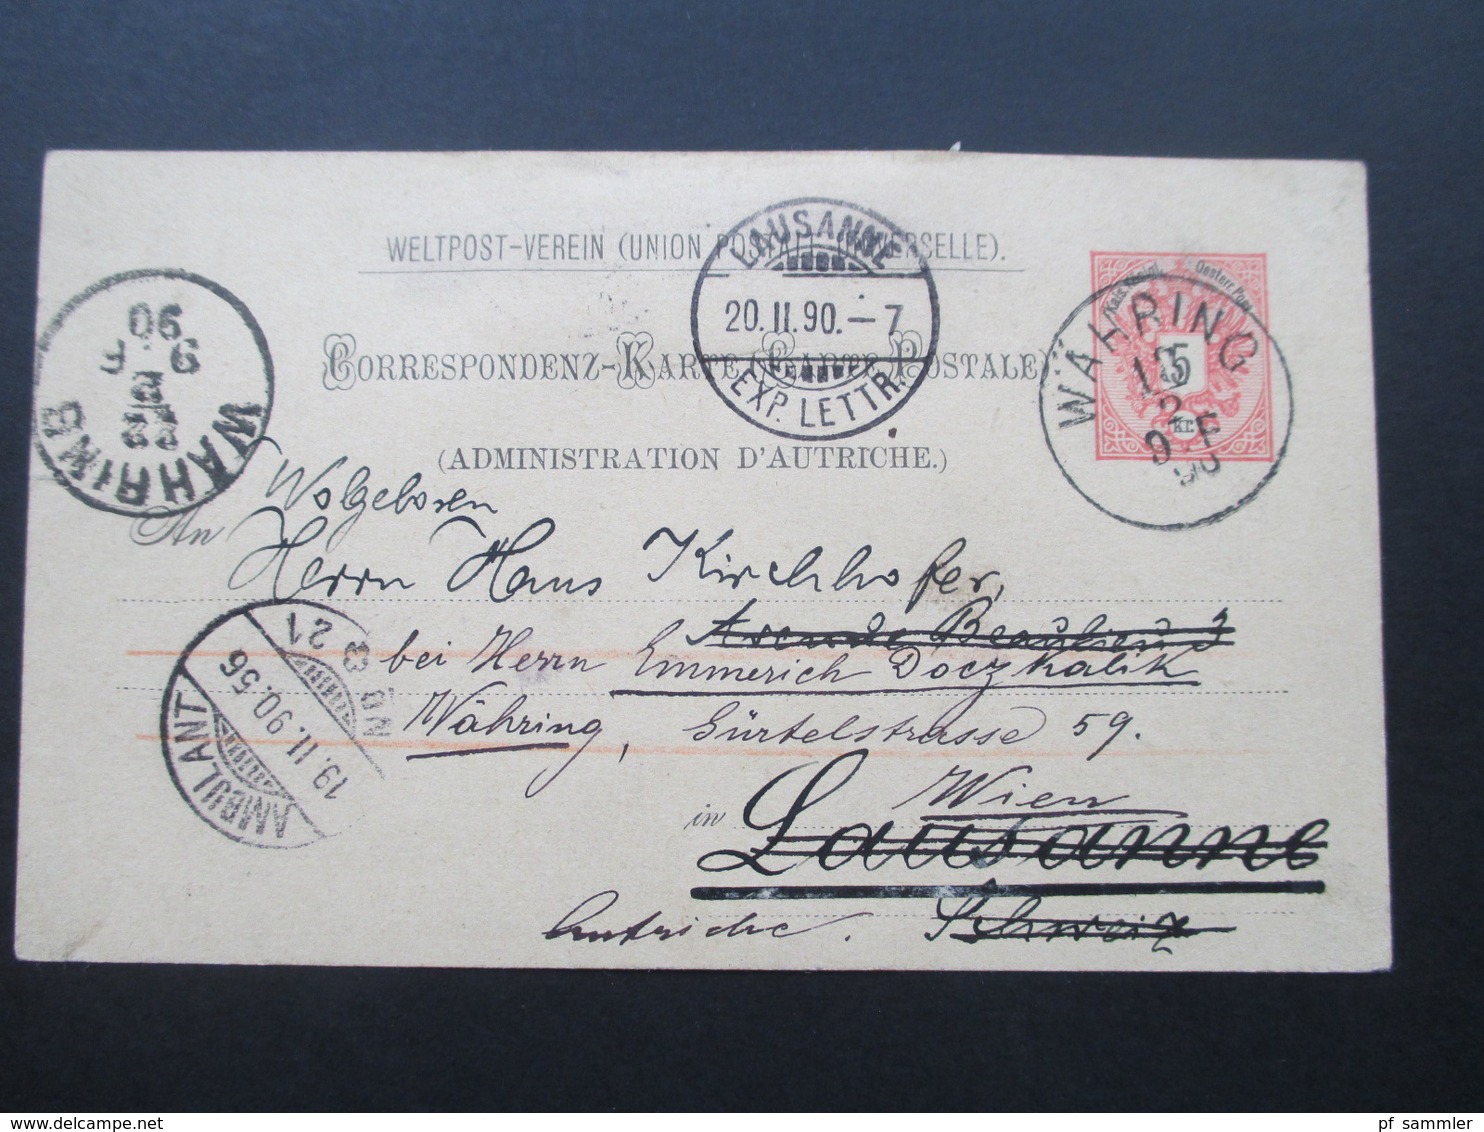 WELTPOST-VEREIN (UNION POSTALE UNIVERSELLE).
CORRESPONDENZ-KARTE (CARTE POSTALE)
(ADMINISTRATION D'AUTRICHE.)
LAUSANNE
20.II.90.-7
EXP. LETTR.
Kais. Königl. Oesterr. Post
5
Kr.
WÄHRING
2
9 F
90
WÄHRING
90
9. F
AMBULANT
19.II.90.56
No 3 21
Wolgeboren
An Herrn Hans Kirchhofer,
Avenue Beaulieu 3
bei Herrn Emmerich Doczkalik
Währing, Gürtelstrasse 59.
Wien
in Lausanne
Autriche. Schweiz
delcampe.net
pf_sammler